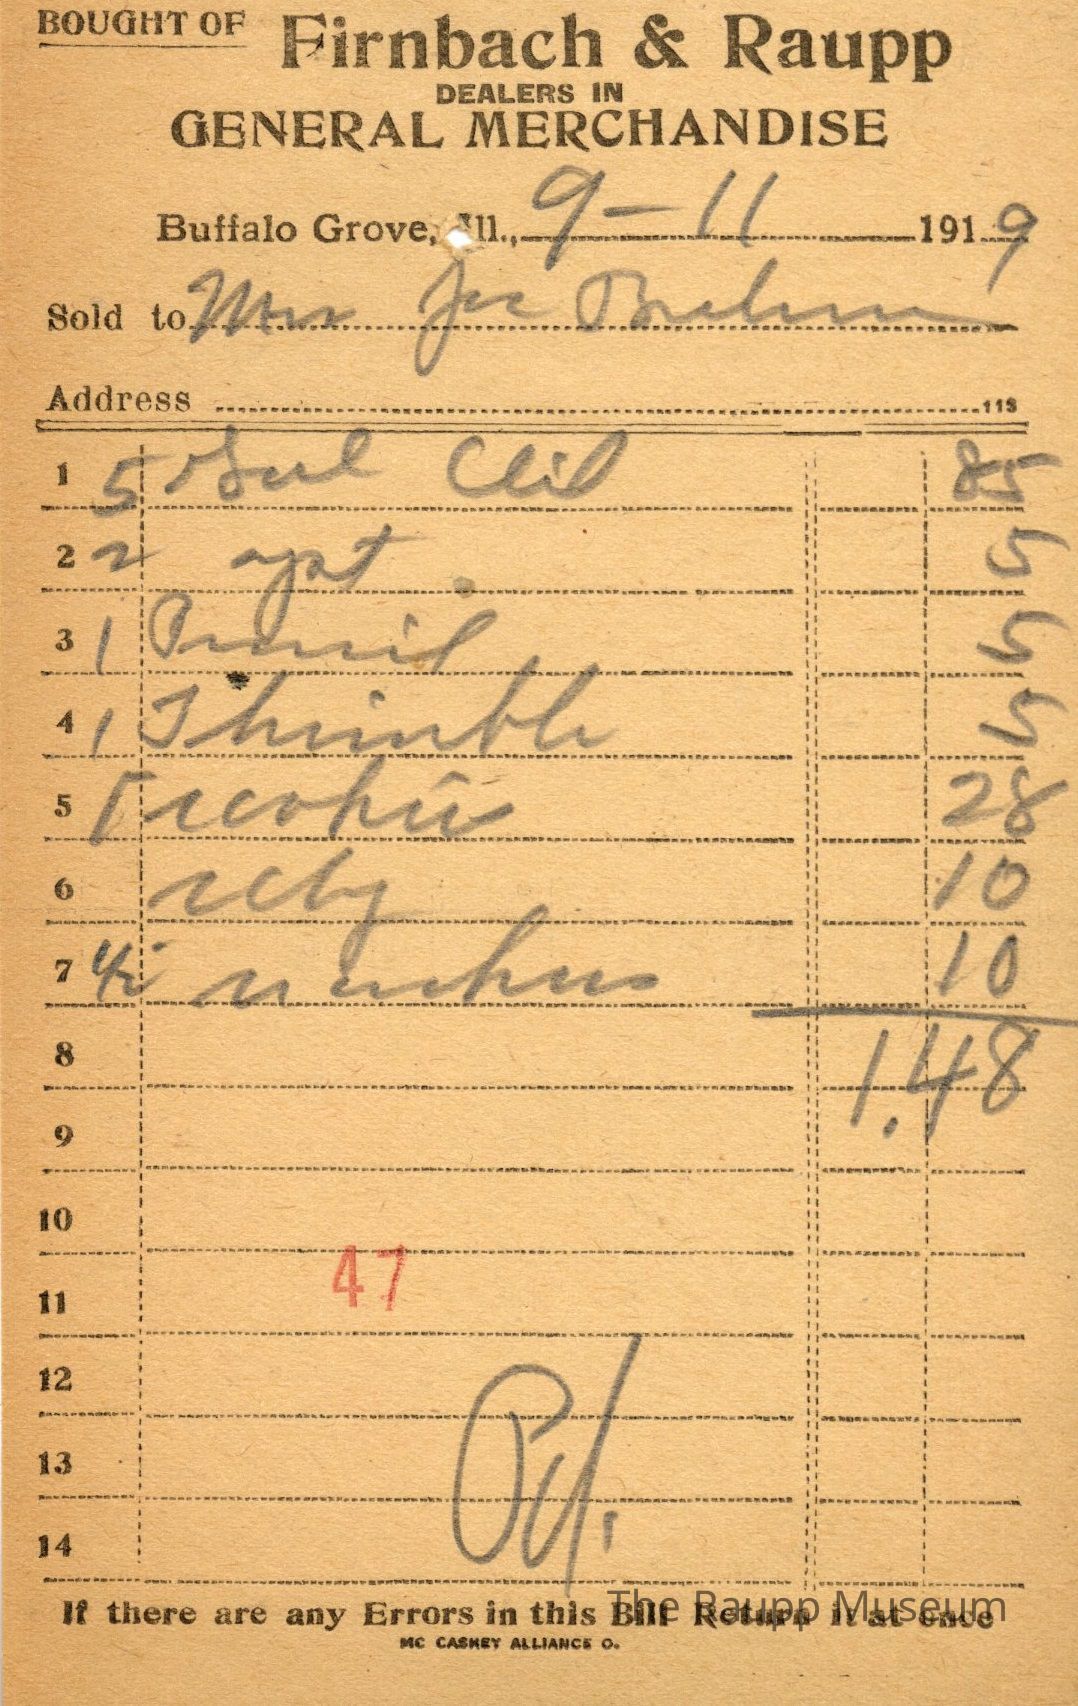 BOUGHT OF Firnbach & Raupp
DEALERS IN
GENERAL MERCHANDISE
Buffalo Grove, Ill., 9-11 1919
Sold to Mrs Joe
Address 113
1 5 85
2 2 5
3 1 Pencil 5
4 1 Thimble 5
5 28
6 10
7 10
8 1.48
9
10
47
11
12
13
Pd.
14
If there are any Errors in this Bill Return it at once
The Raupp Museum
MC CASKEY ALLIANCE O.